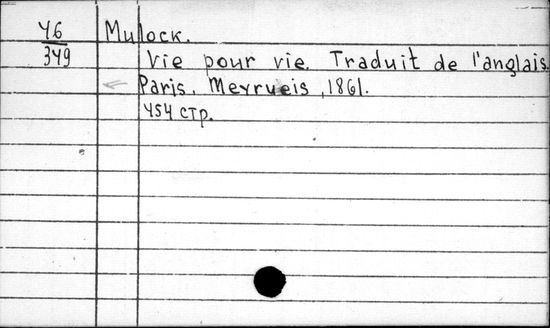 46 Mulock.
349 Vie pour vie. Traduit de l'anglais.
Paris. Meyrueis, 1861.
454 стр.